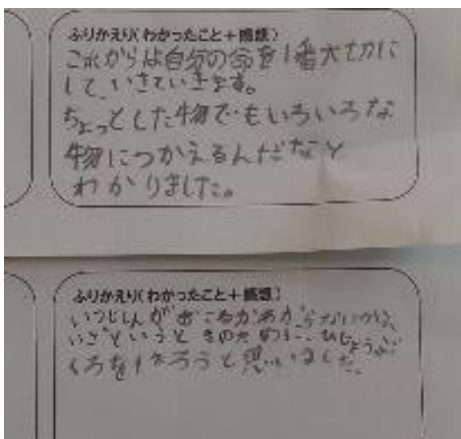 ふりかえり(わかったこと+感想)
これからは自分の命を1番大切に
して、いきていきます。
ちょっとした物でもいろいろな
物につかえるんだなと
わかりました。
ふりかえり(わかったこと+感想)
いつじしんがおこるかわからないから、
いざというときのために、ひじょうぶ
くろを作ろうと思いました。